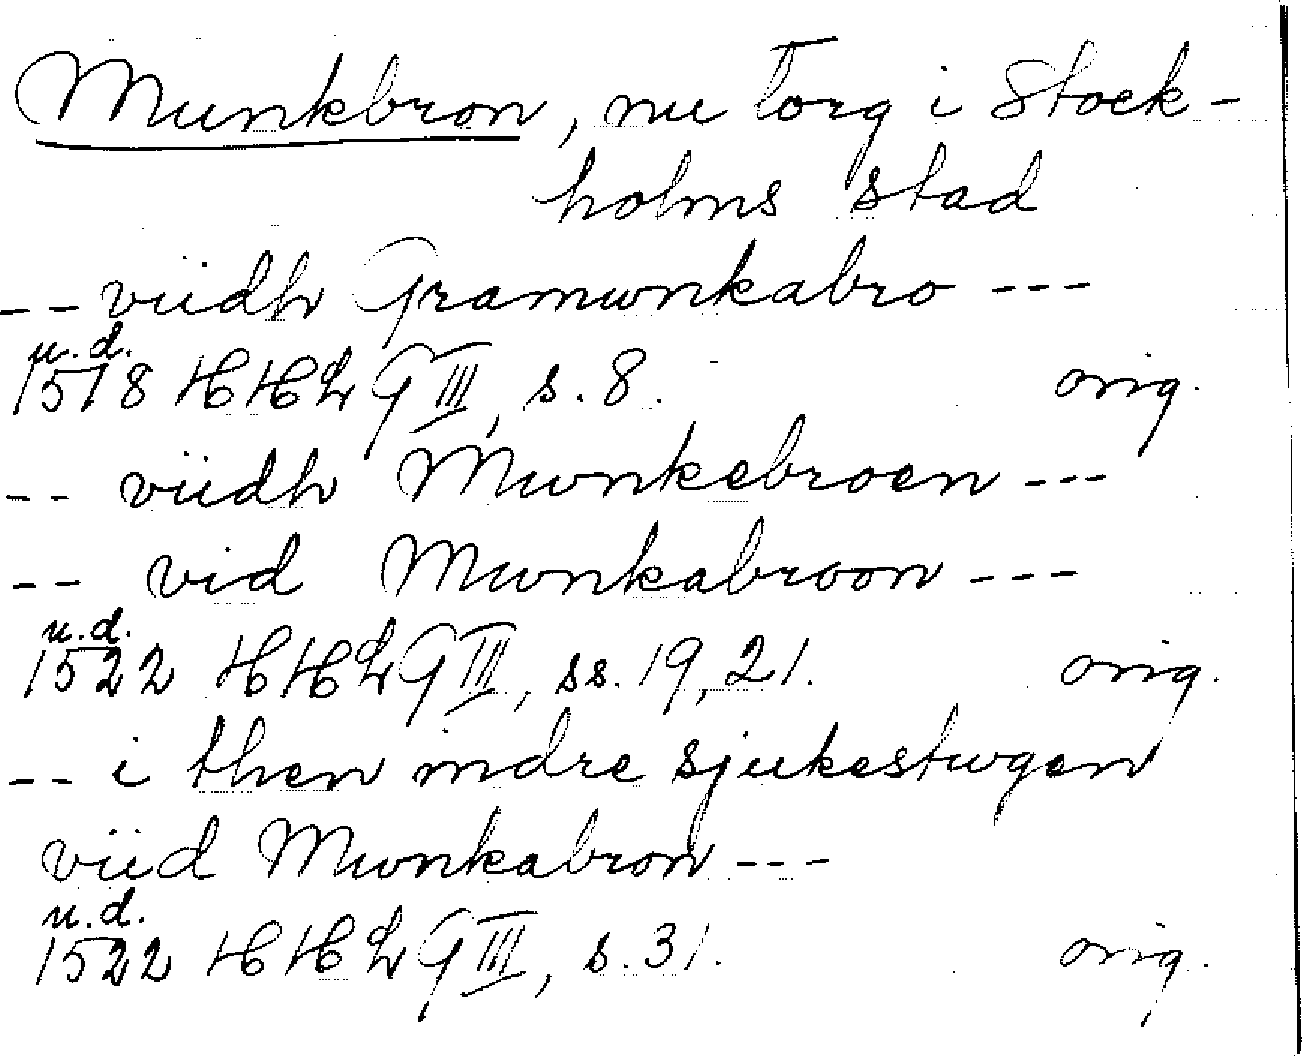 Munkbron, nu Torg i Stock-
holms stad
-- viidh Gramwnkabro ---
u.d.
1518 HHLG III, s. 8. orig.
-- viidh Mwnkebroen ---
-- vid Mwnkabroon ---
u.d.
1522 HHLG III, ss. 19, 21. orig.
-- i then indre sjukestwgen
viid Mwnkabron ---
u.d.
1522 HHLG III, s. 31. orig.